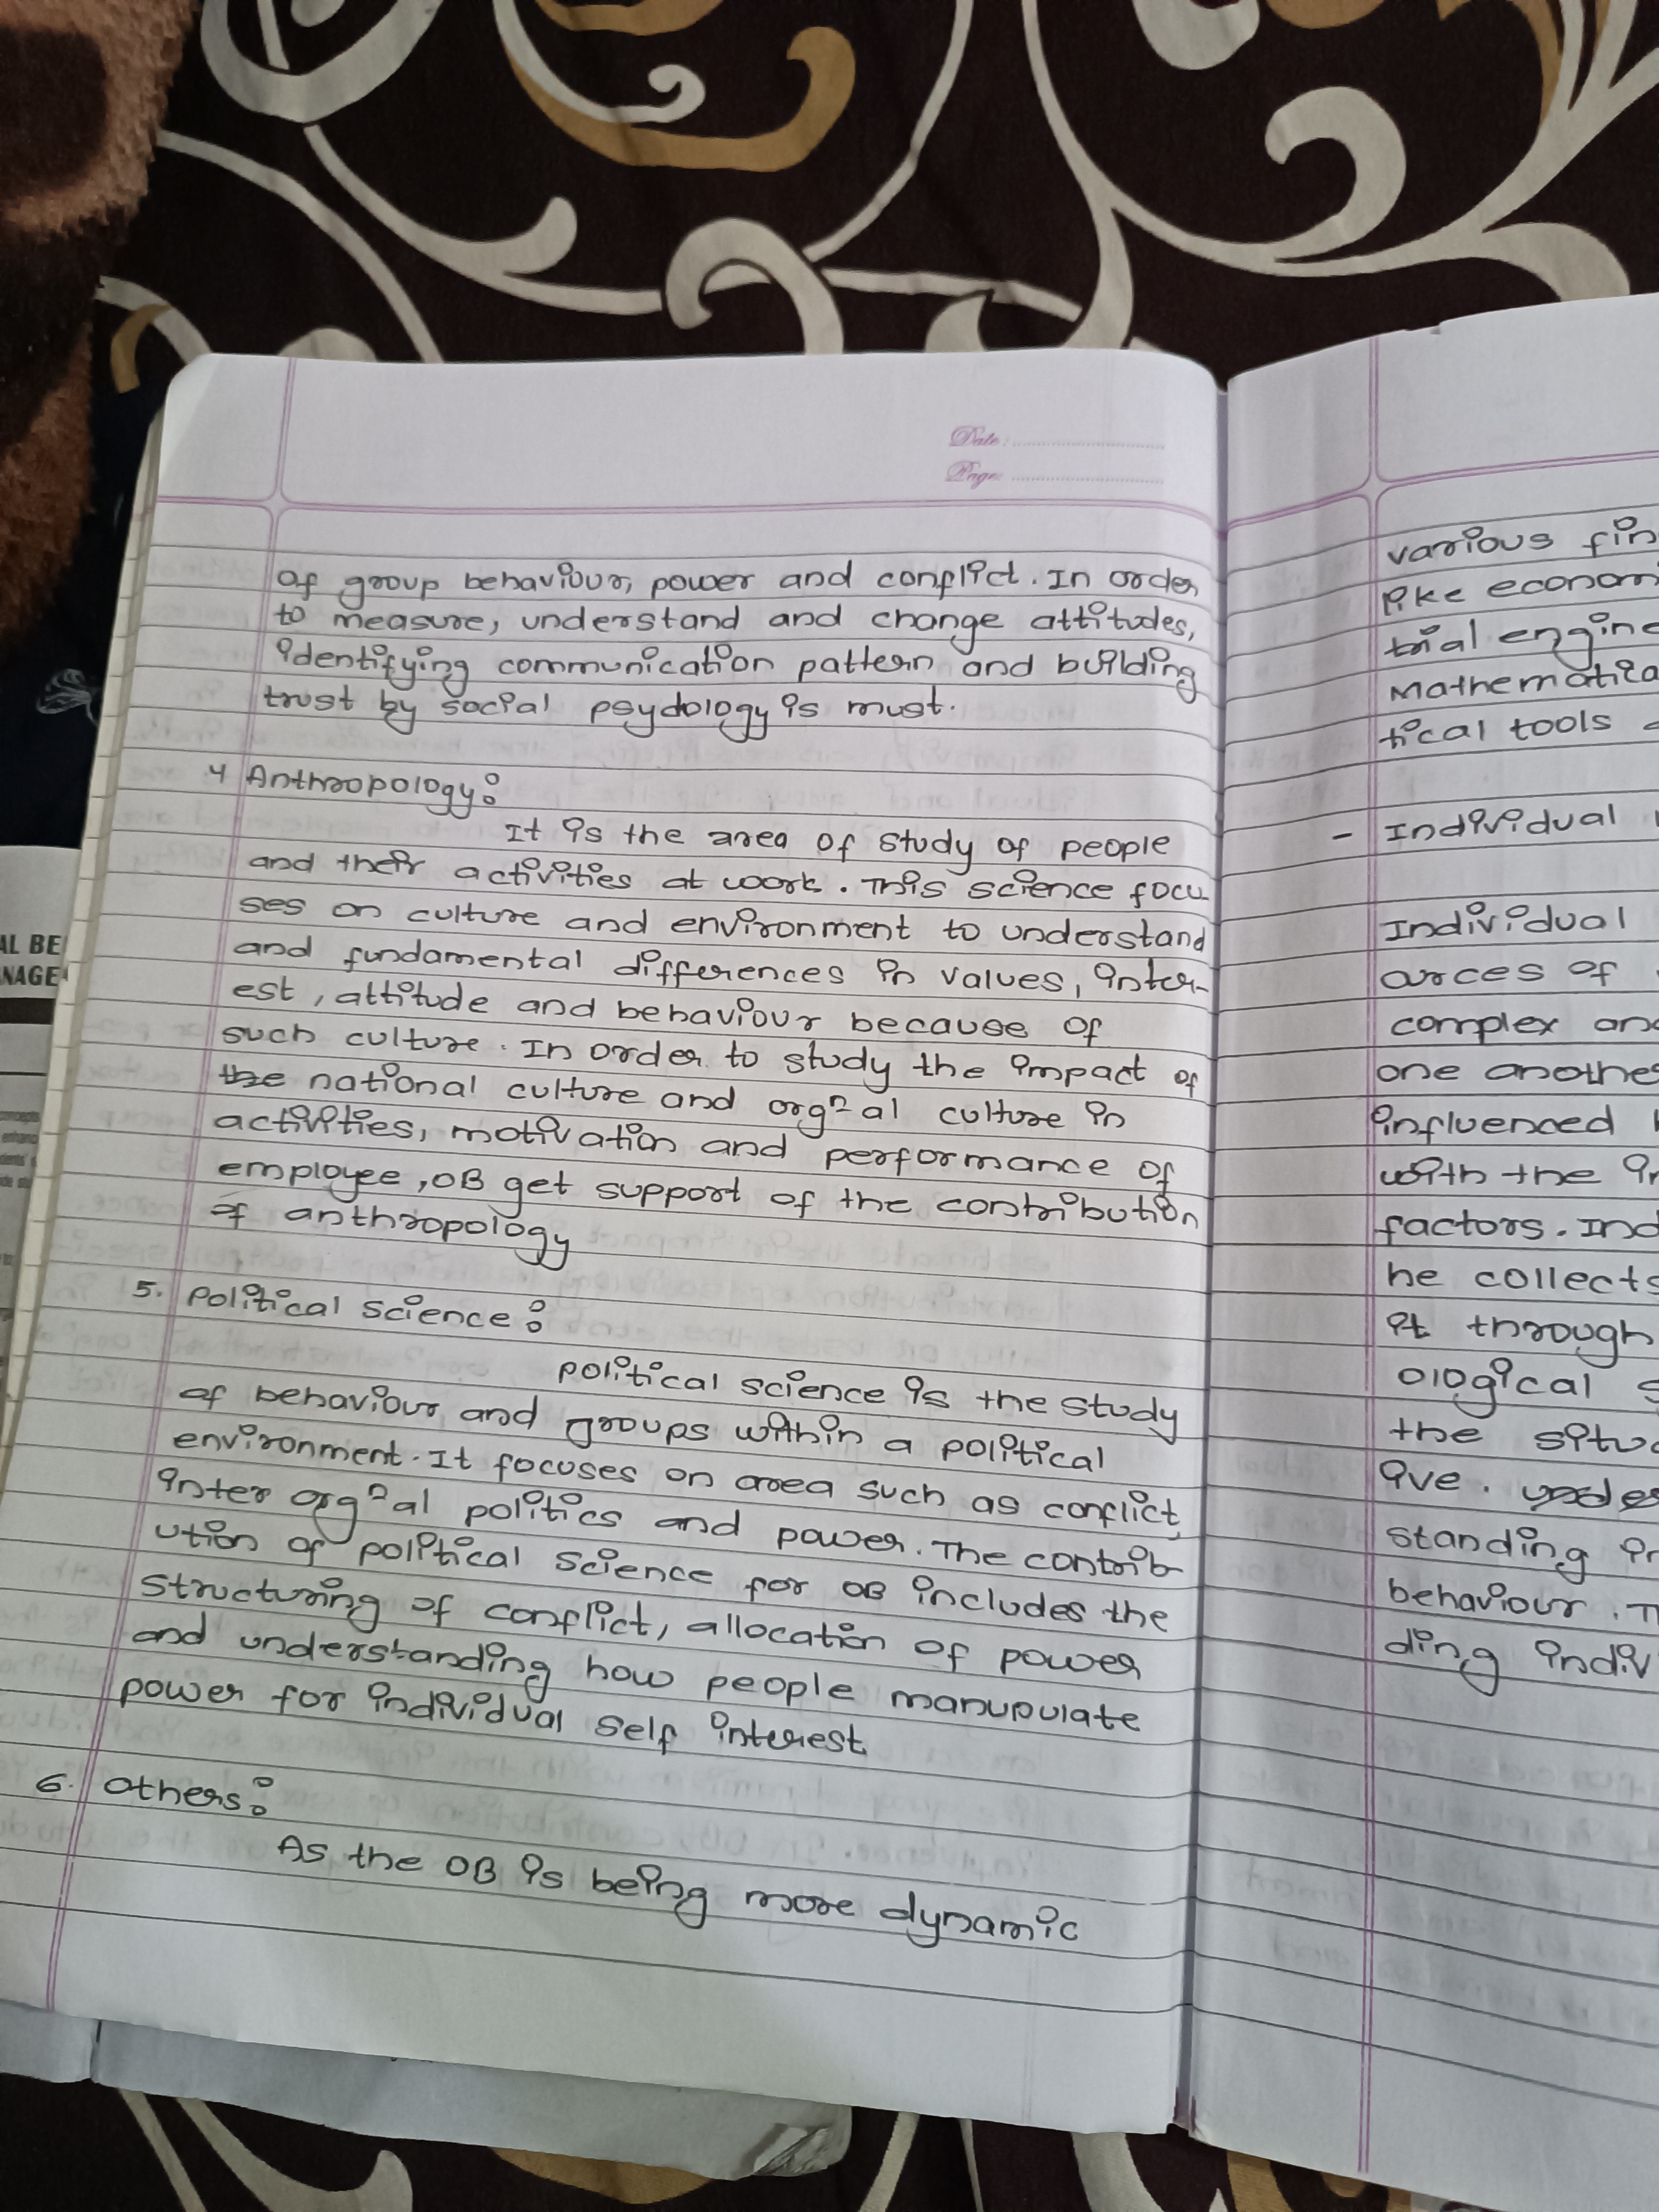 Date:
Page:
of group behaviour, power and conflict. In order
to measure, understand and change attitudes,
identifying communication pattern and building
trust by social psydology is must.
4 Anthropology:
It is the area of study of people
and their activities at work. This science focu
ses on culture and environment to understand
and fundamental differences in values, inter-
est, attitude and behaviour because of
such culture. In order to study the impact of
the national culture and orgⁿal culture in
activities, motivation and performance of
employee, OB get support of the contribution
of anthropology
5. Political science:
Political science is the study
of behaviour and groups within a political
environment. It focuses on area such as conflict,
inter orgⁿal politics and power. The contrib
ution of political science for OB includes the
structuring of conflict, allocation of power
and understanding how people manupulate
power for individual self interest
6. Others:
As the OB is being more dynamic
various fin
like econom
trial engine
Mathematica
tical tools
- Individual
Individual
ources of
complex and
one anothe
influenced
with the in
factors. Ind
he collects
it through
ological s
the situa
ive. undes
standing in
behaviour. T
ding indiv
AL BE
NAGE